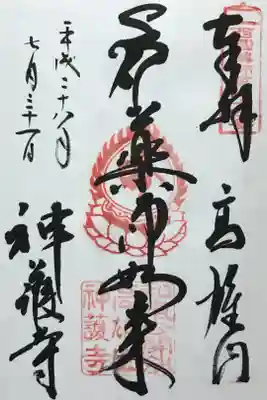 奉拝
高雄山
薬師如来
平成二十八年
七月三十一日
神護寺
神護寺